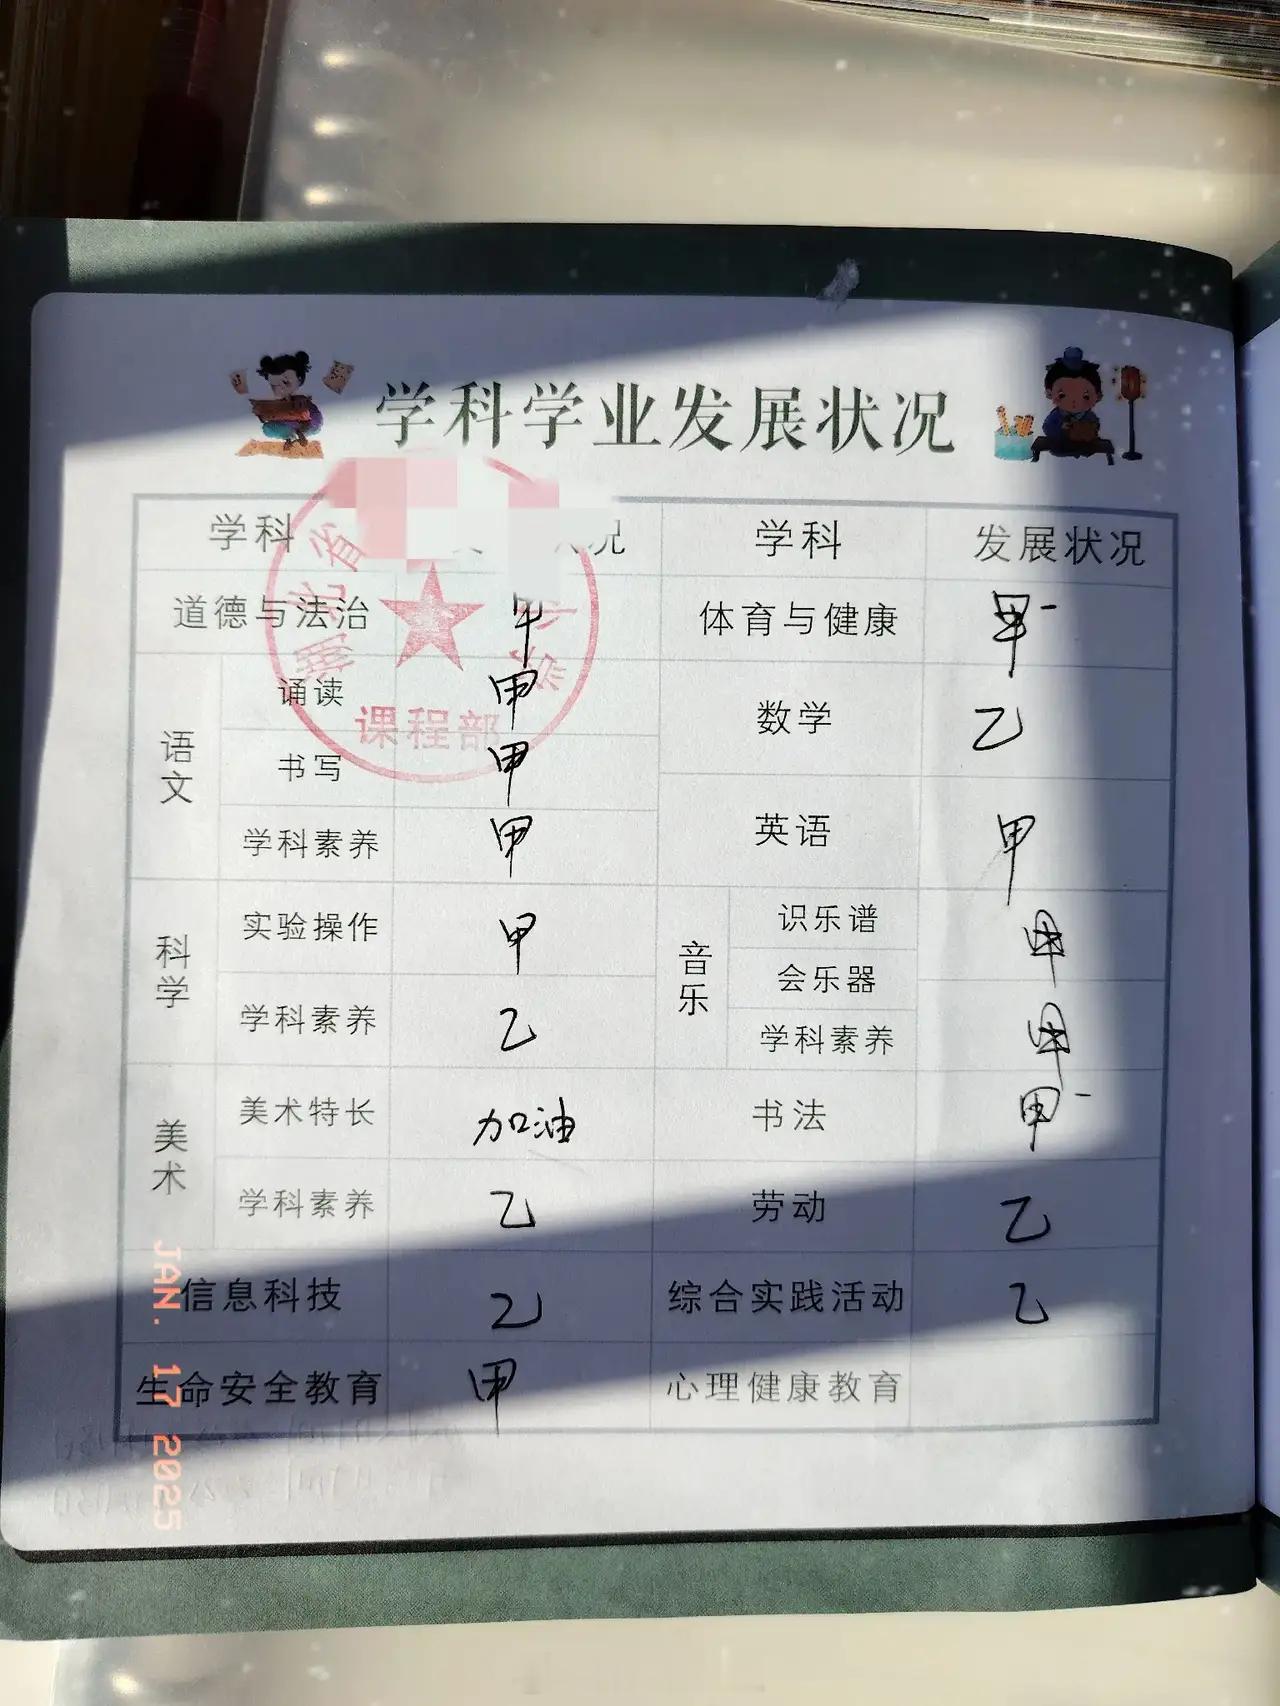 学科学业发展状况
学科 况 学科 发展状况
道德与法治 甲 体育与健康 甲-
语文 诵读 甲
书写 甲
学科素养 甲
数学 乙
英语 甲
科学 实验操作 甲
学科素养 乙
音乐 识乐谱 甲
会乐器
学科素养 甲
美术 美术特长 加油 书法 甲-
学科素养 乙 劳动 乙
信息科技 乙 综合实践活动 乙
生命安全教育 甲 心理健康教育
湖北省
课程部
JAN. 17 2025